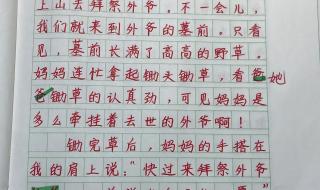 上山去拜祭外爷。不一会儿，
我们就来到外爷的墓前。只看
见，墓前长满了高高的野草。
妈妈连忙拿起锄头锄草，看爸她
爸锄草的认真劲，可见妈妈是
多么牵挂着去世的外爷啊！
锄完草后，妈妈的手搭在
我的肩上说："快过来拜祭外爷